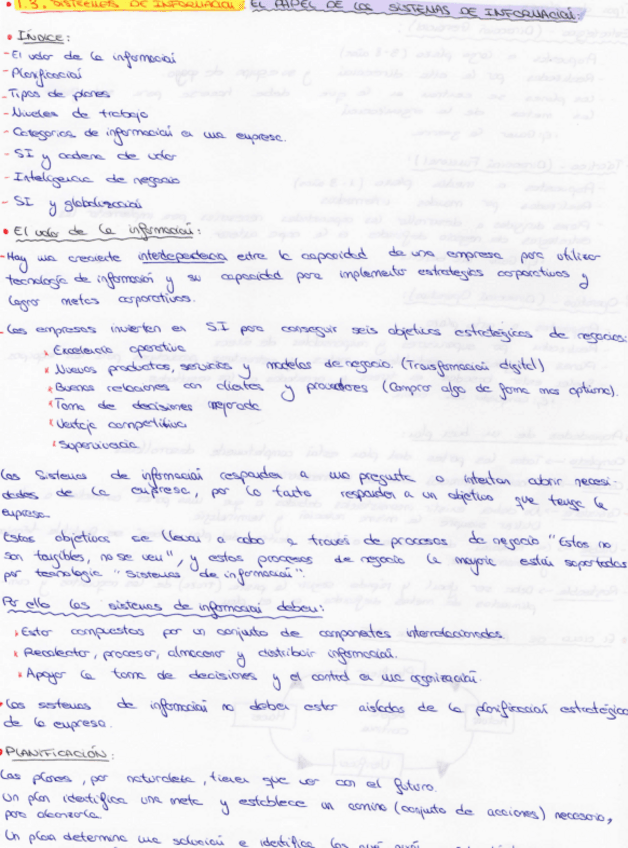 • 1.3. SISTEMAS DE INFORMACIÓN: EL PAPEL DE LOS SISTEMAS DE INFORMACIÓN:
• ÍNDICE:
- El valor de la información
- Planificación
- Tipos de planes
- Niveles de trabajo
- Categorías de información en una empresa.
- SI y cadena de valor
- Inteligencia de negocio
- SI y globalización
• El valor de la información:
- Hay una creciente interdependencia entre la capacidad de una empresa para utilizar
tecnología de información y su capacidad para implementar estrategias corporativas y
lograr metas corporativas.
- Las empresas invierten en S.I para conseguir seis objetivos estratégicos de negocios:
* Excelencia operativa
* Nuevos productos, servicios y modelos de negocio (Transformación digital)
* Buenas relaciones con clientes y proveedores (Comprar algo de forma mas optima).
* Toma de decisiones mejorada
* Ventaja competitiva
* Supervivencia
Los Sistemas de información responden a una pregunta o intentan cubrir necesi-
dades de la empresa, por lo tanto responden a un objetivo que tenga la
empresa.
Estos objetivos se llevan a cabo a través de procesos de negocio "Estos no
son tangibles, no se ven", y estos procesos de negocio la mayoría están soportados
por tecnología "Sistemas de información".
Por ello los sistemas de información deben:
* Estar compuestos por un conjunto de componentes interrelacionados.
* Recolectar, procesar, almacenar y distribuir información.
* Apoyar la toma de decisiones y el control en una organización.
• Los sistemas de información no deben estar aislados de la planificación estratégica
de la empresa.
• PLANIFICACIÓN:
Los planes, por naturaleza, tienen que ver con el futuro.
Un plan identifica una meta y establece un camino (conjunto de acciones) necesario,
para alcanzarla
Un plan determina una solución e identifica los